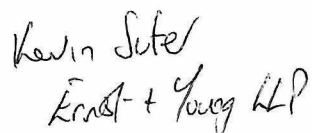 Kevin Suter
Ernst + Young LLP